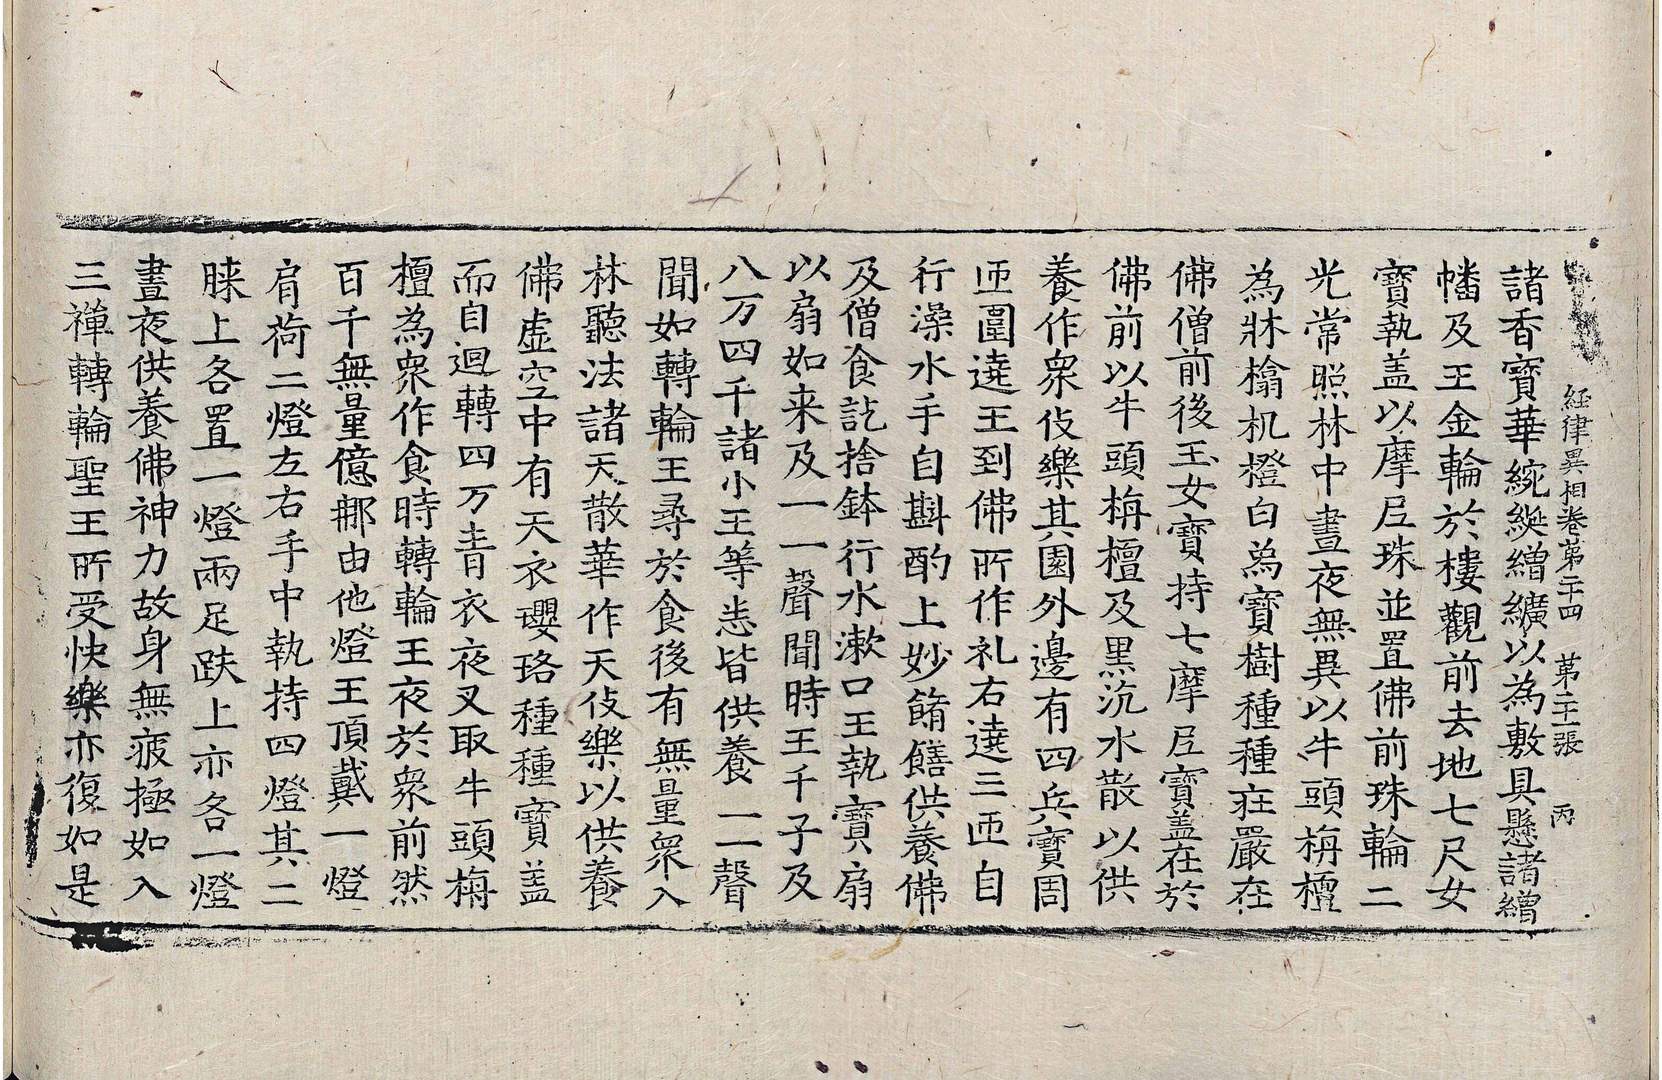 経律異相卷第二十四　第二十二張　丙
諸香寶華綩綖繒纊以為敷具懸諸繒
幡及王金輪於樓觀前去地七尺女
寶執盖以摩尼珠並置佛前珠輪二
光常照林中晝夜無異以牛頭栴檀
為牀榻机橙白為寶樹種種莊嚴在
佛僧前後玉女寶持七摩尼寶盖在於
佛前以牛頭栴檀及黒沉水散以供
養作衆伎樂其園外邊有四兵寶周
匝圍遶王到佛所作礼右遶三匝自
行澡水手自斟酌上妙餚饍供養佛
及僧食訖捨鉢行水漱口王執寶扇
以扇如来及一一聲聞時王千子及
八万四千諸小王等悉皆供養一一聲
聞如轉輪王尋於食後有無量衆入
林聽法諸天散華作天伎樂以供養
佛虚空中有天衣瓔珞種種寶盖
而自迴轉四万青衣夜叉取牛頭栴
檀為衆作食時轉輪王夜於衆前然
百千無量億那由他燈王頂戴一燈
肩荷二燈左右手中執持四燈其二
膝上各置一燈兩足趺上亦各一燈
晝夜供養佛神力故身無疲極如入
三禪轉輪聖王所受快樂亦復如是